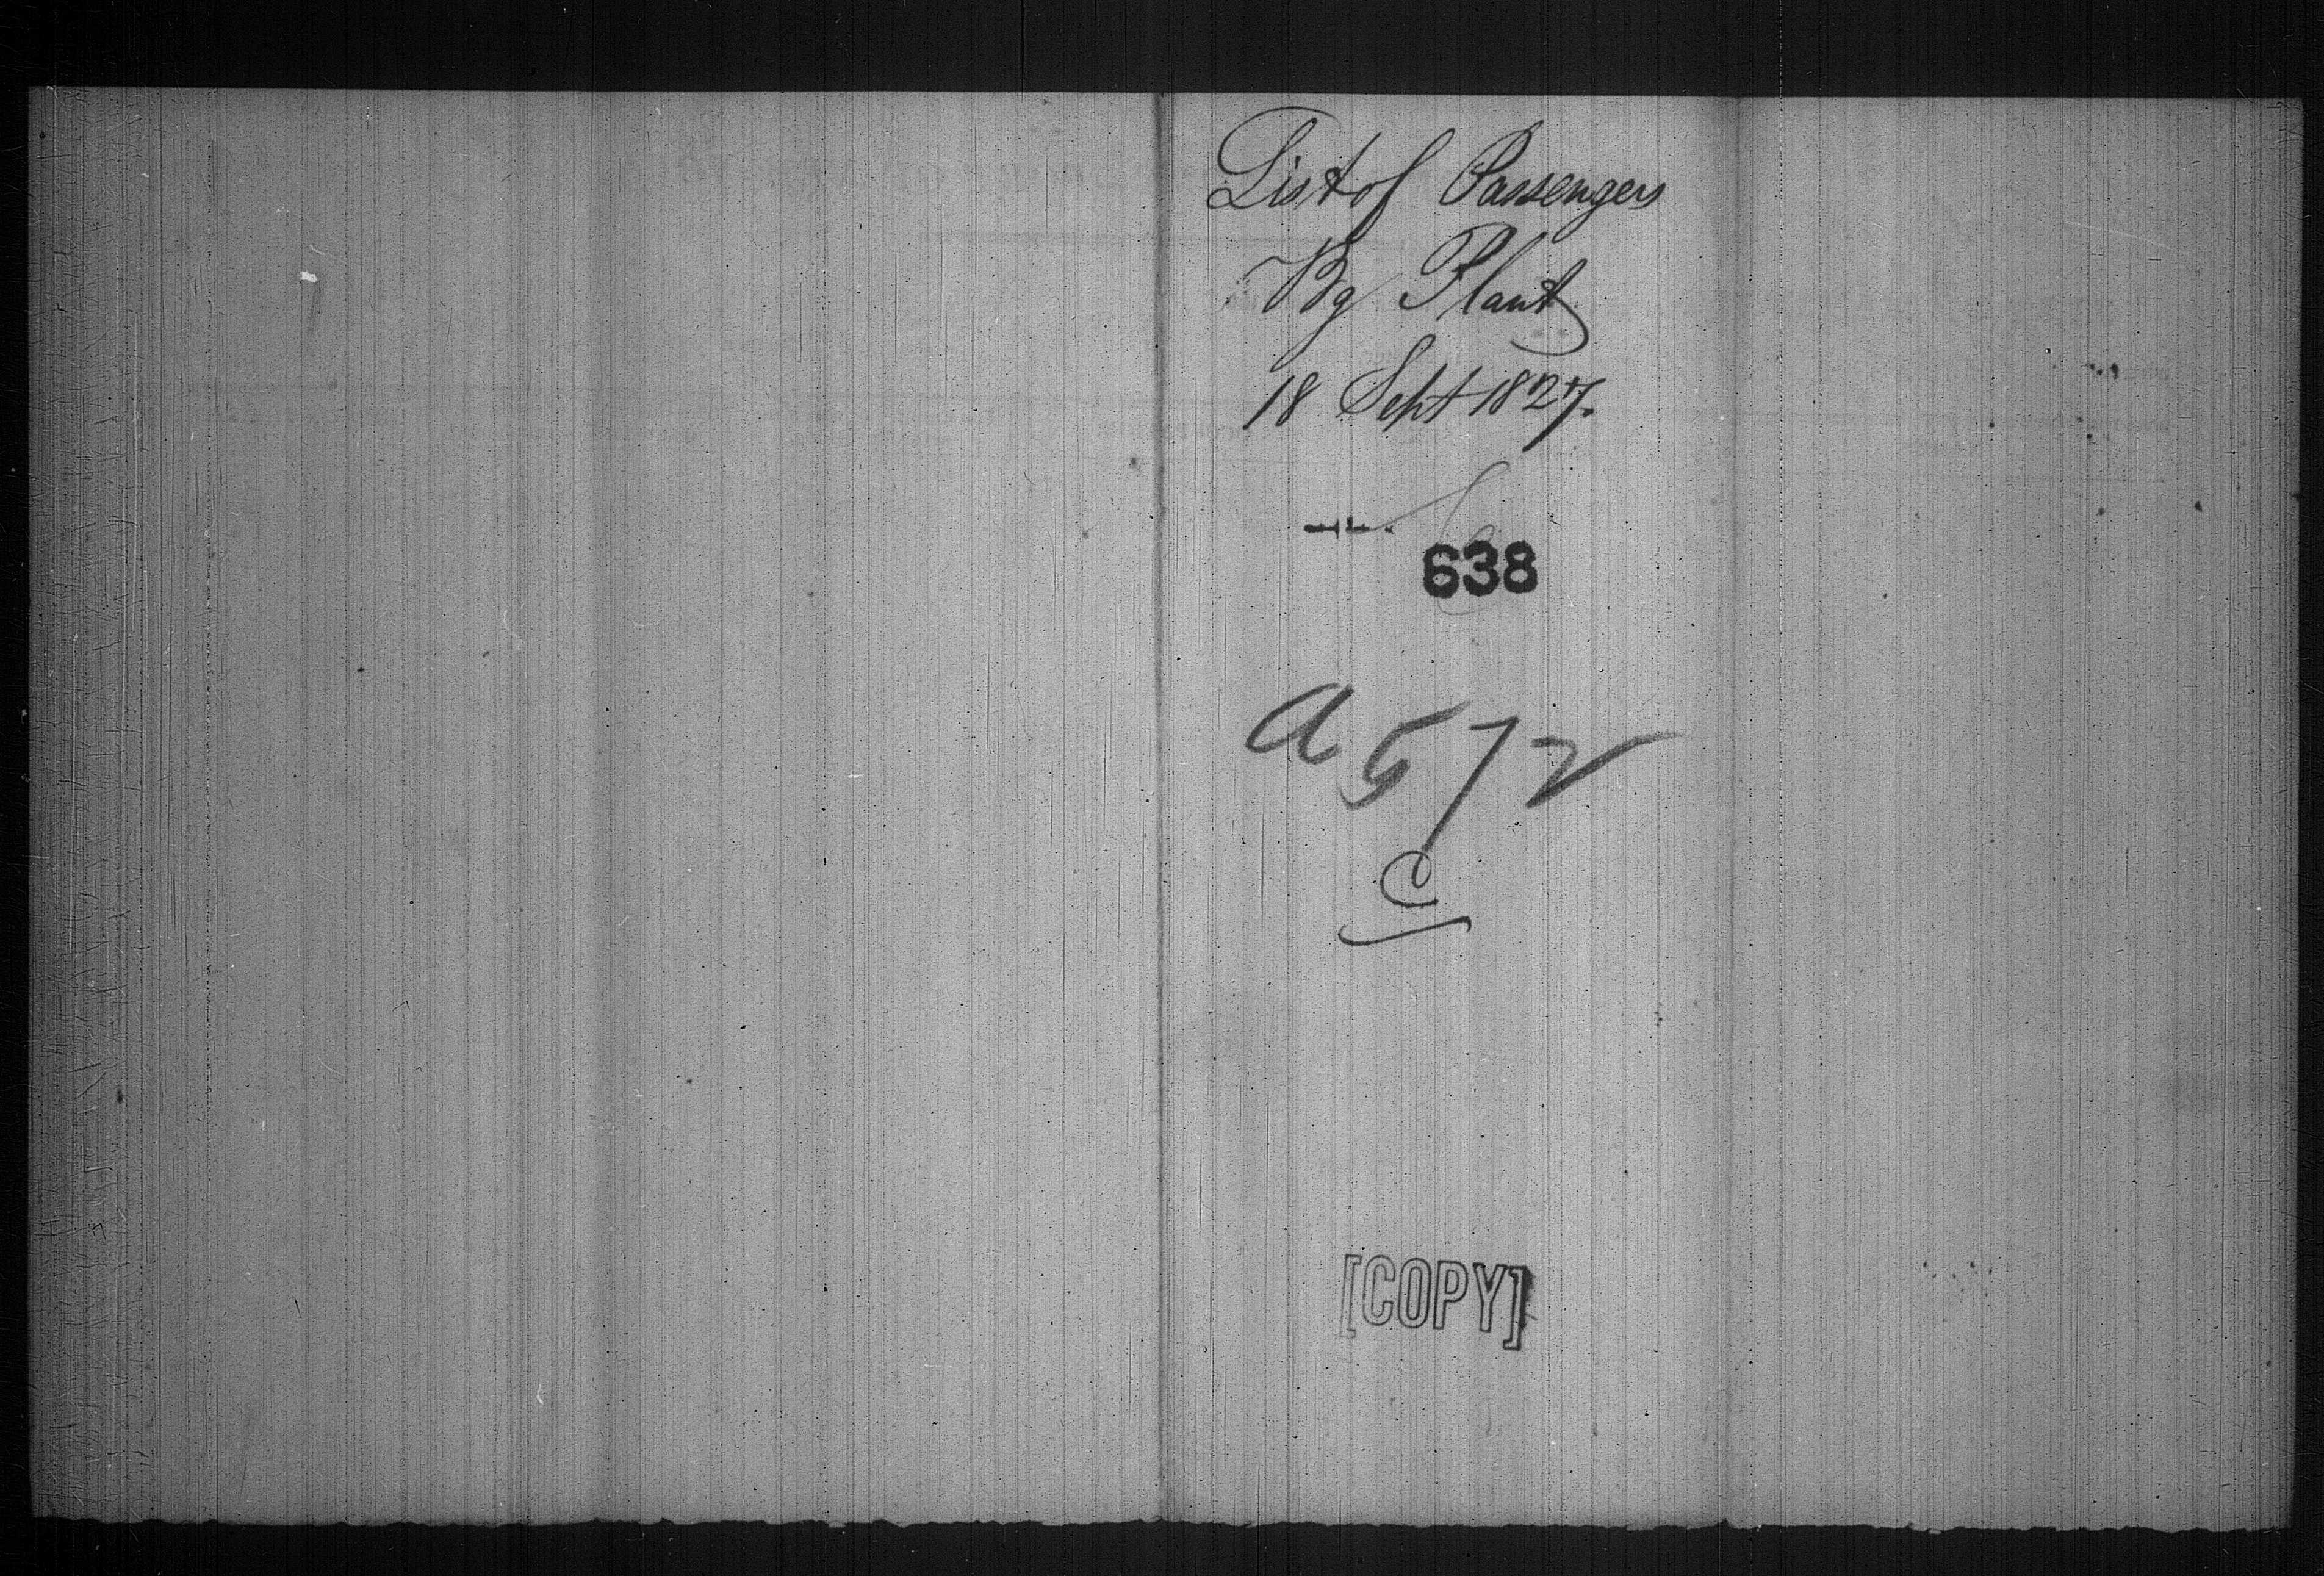 List of Passengers
Bg Plant
18 Sept 1827.
638
a 572
C
[COPY]